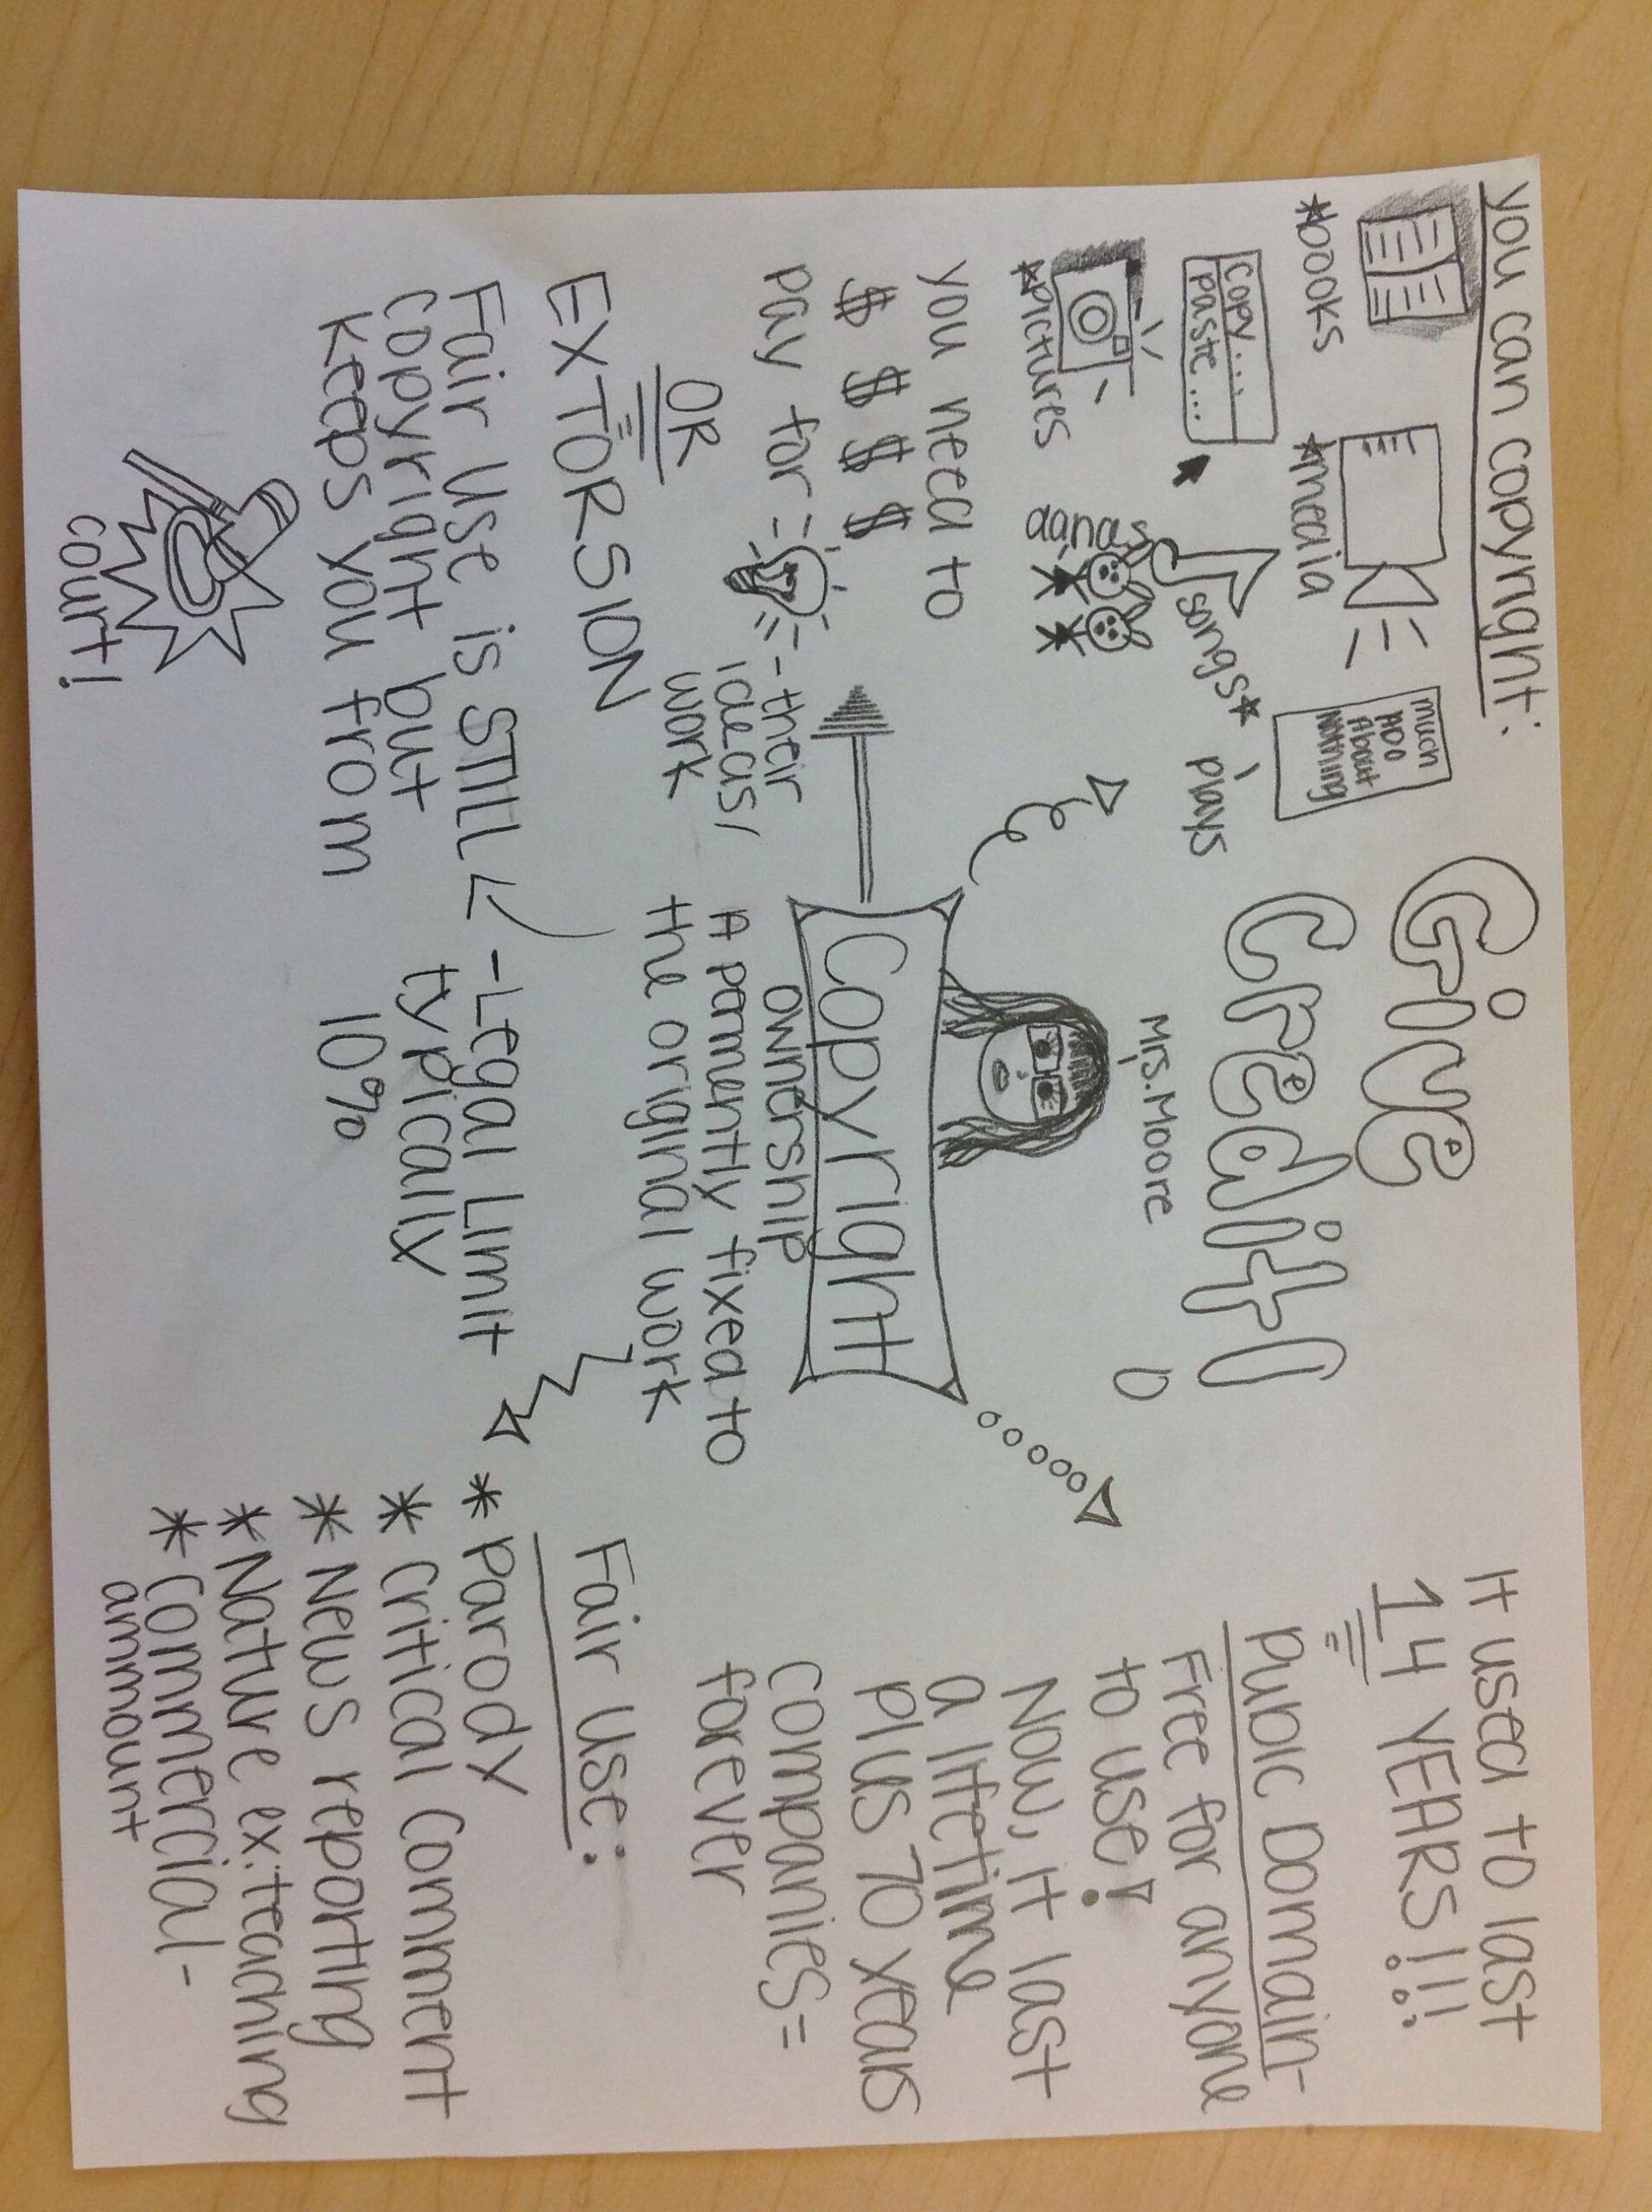 you can copyright:
*books
*media
much
ADO
About
Nothing
plays
songs*
copy...
paste...
*pictures
aanas
you need to
$ $ $ $
pay for =
- their
ideas/
work
OR
EXTORSION
Fair Use is STILL
copyright but
keeps you from
court!
Give
Credit!
Mrs. Moore
Copyright
ownership
A pamently fixed to
the original work
-Legal Limit
typically
10%
It used to last
14 YEARS!!!
Pubic Domain-
Free for anyone
to use!
Now, it last
a lifetime
plus 70 years
companies=
forever
Fair Use:
* Parody
* Critical comment
* News reporting
* Nature ex: teaching
* Commercial-
ammount